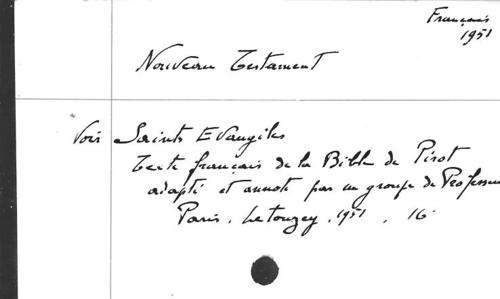 Français
1951
Nouveau Testament
Voir Saints Evangiles
Texte français de la Bible de Pirot
adapté et annoté par un groupe de Professeu
Paris, Letouzey, 1951, 16°